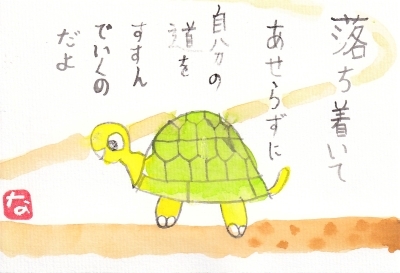 落ち着いて
あせらずに
自分の
道を
すすん
でいくの
だよ
な